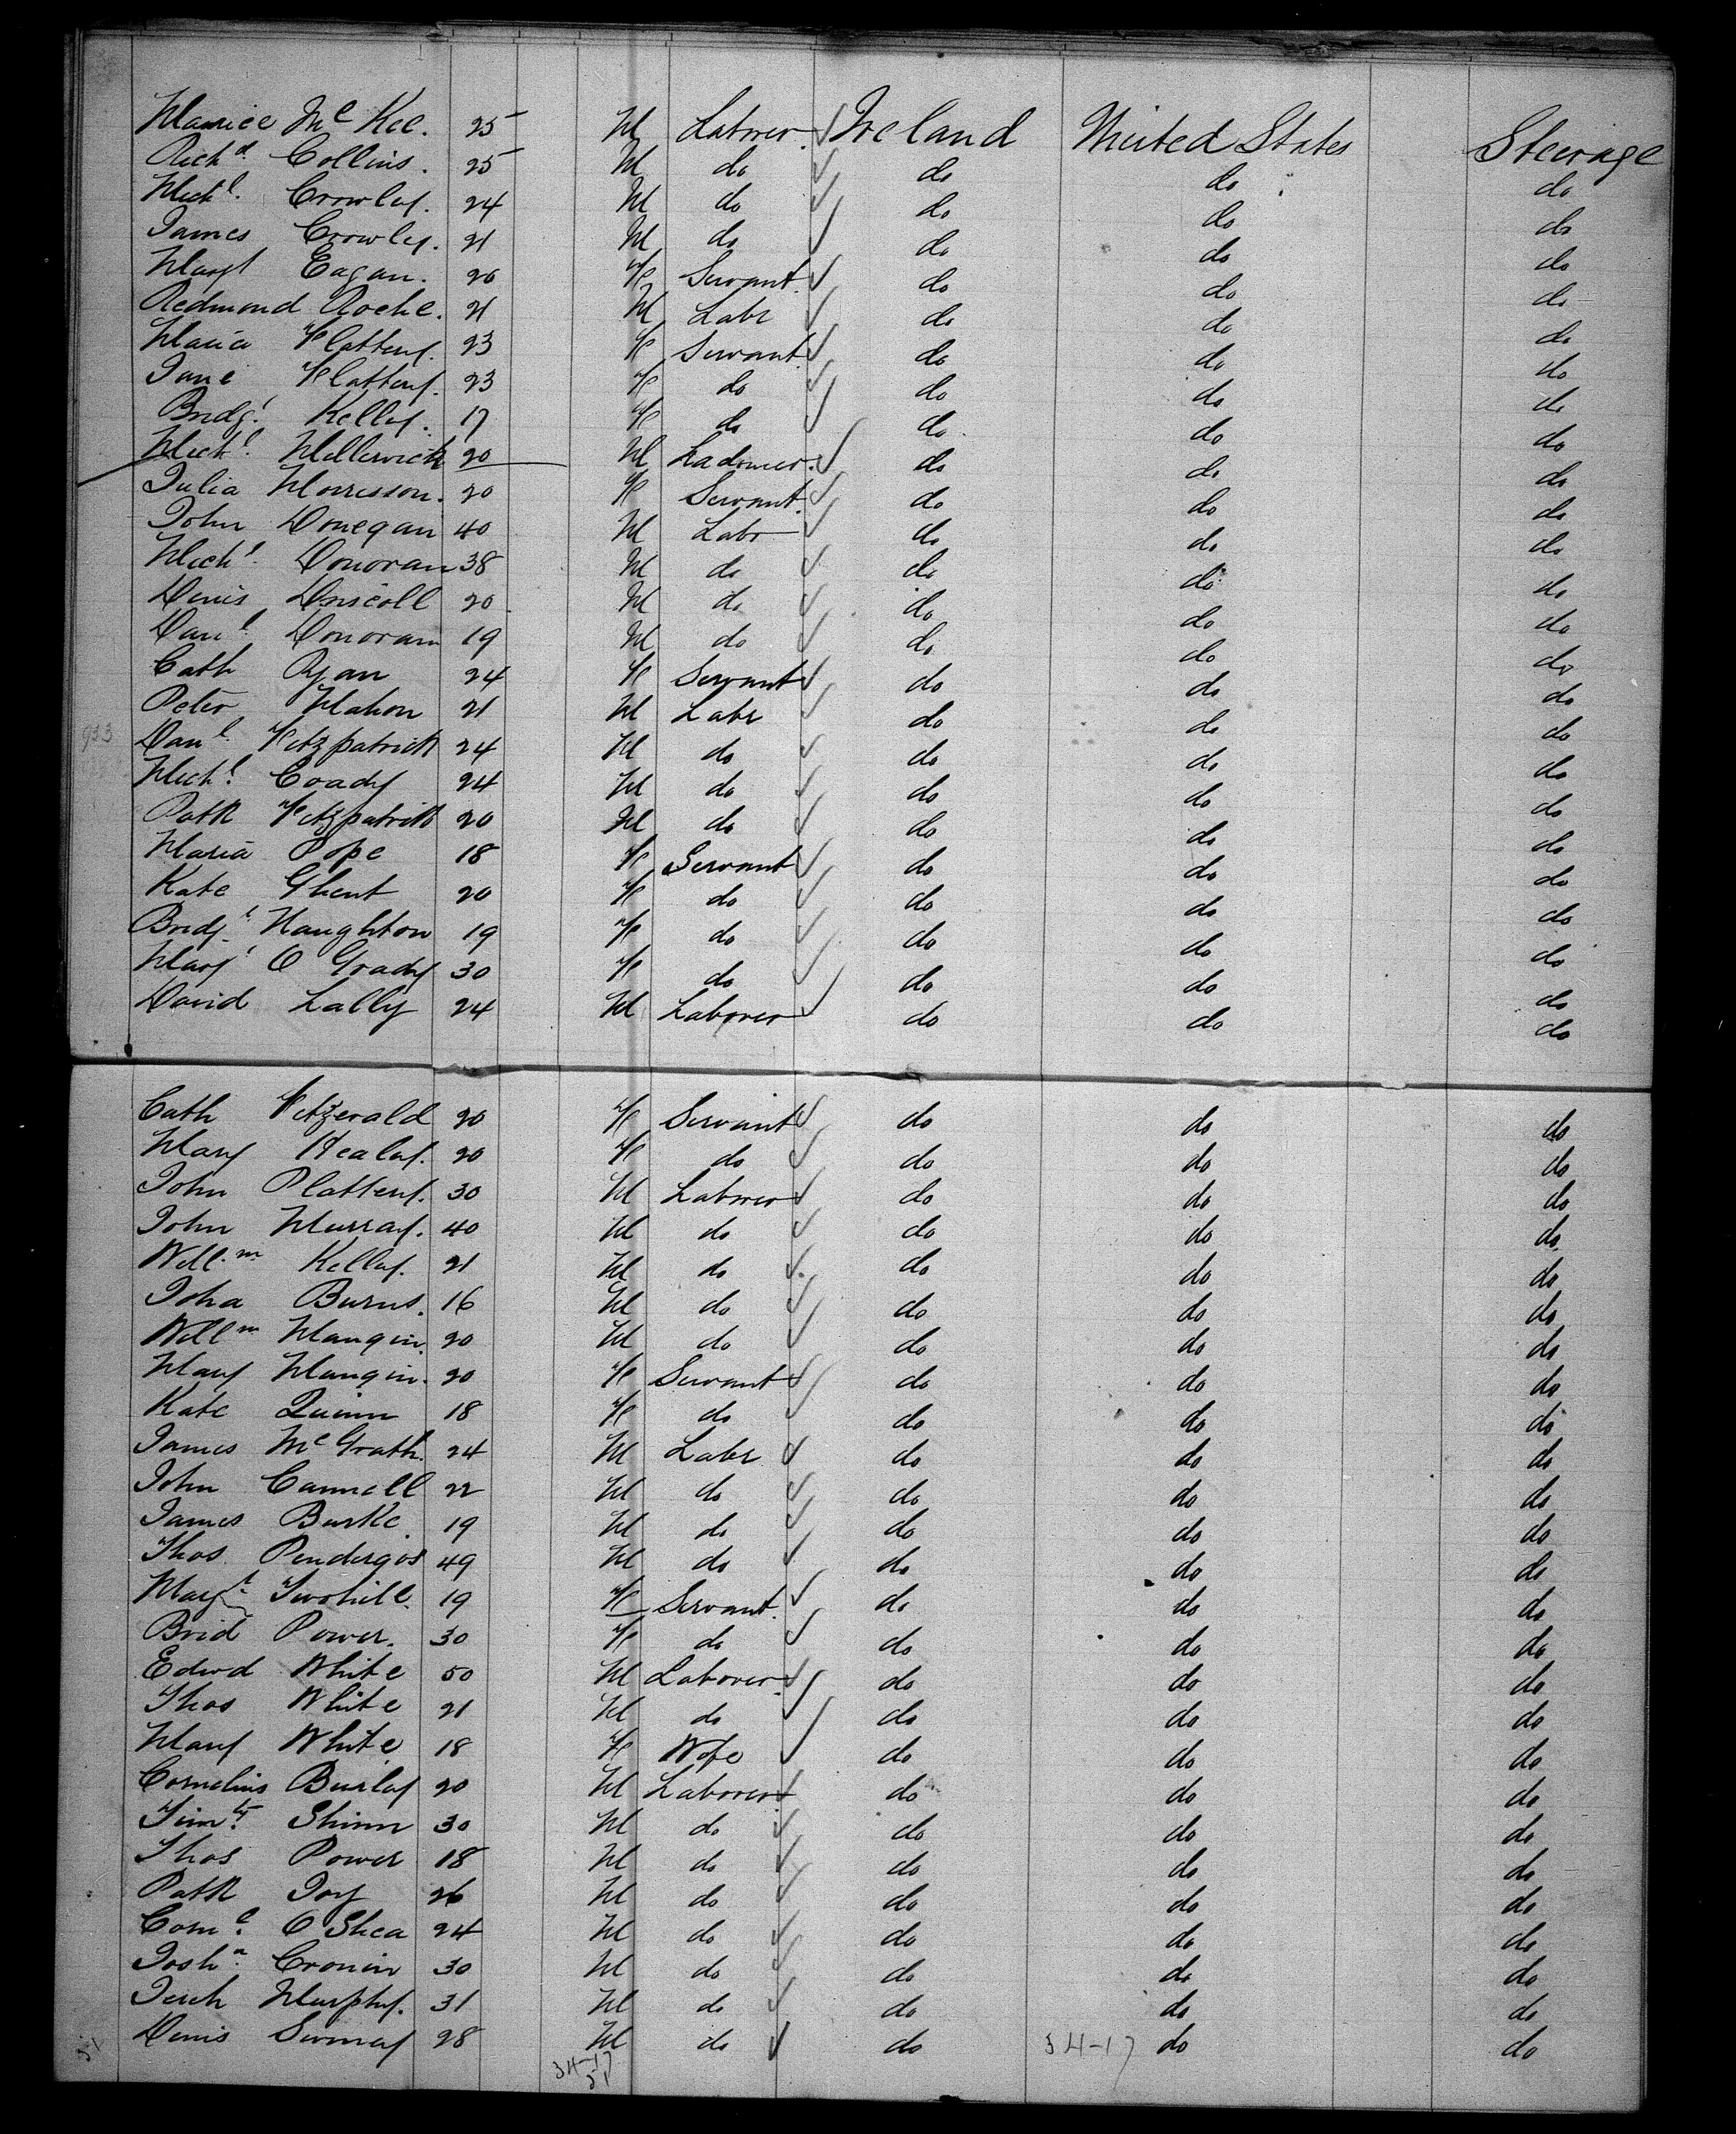 Maurice Mc Kee. 25 M Laborer. Ireland United States Steerage
Richd. Collins. 25 M do do do do
Michl. Crowley. 24 M do do do do
James Crowley. 21 M do do do do
Margt Eagan. 20 F Servant. do do do
Redmond Roche. 21 M Labr do do do
Maria Flattery. 23 F Servant. do do do
Jane Flattery. 23 F do do do do
Bridgt. Kelley. 17 F do do do do
Michl. Mellerick 20 M Laborer. do do do
Julia Morrisson. 20 F Servant. do do do
John Donegan 40 M Labr do do do
Michl. Donovan 38 M do do do do
Denis Driscoll 20 M do do do do
Danl. Donovan 19 M do do do do
Cath Ryan 24 F Servant do do do
Peter Mahon 21 M Labr do do do
933 Danl. Fitzpatrick 24 M do do do do
Michl. Coady 24 M do do do do
Patk Fitzpatrick 20 M do do do do
Maria Pope 18 F Servant do do do
Kate Ghent 20 F do do do do
Bridgt. Naughton 19 F do do do do
Margt O Grady 30 F do do do do
David Lally 24 M Laborer do do do
Cath Fitzerald 20 F Servant do do do
Mary Healey. 20 F do do do do
John Plattery. 30 M Laborer do do do
John Murray. 40 M do do do do
Will.m Kelley. 21 M do do do do
John Burns. 16 M do do do do
Willm Mangin. 20 M do do do do
Mary Mangin. 20 F Servant do do do
Kate Quinn 18 F do do do do
James Mc Grath. 24 M Labr do do do
John Cannell 22 M do do do do
James Burke. 19 M do do do do
Thos. Pendergos 49 M do do do do
Margt. Twohill. 19 F Servant. do do do
Brid Power. 30 F do do do do
Edwd White 50 M Laborer. do do do
Thos White 21 M do do do do
Mary White 18 F Wife do do do
Cornelius Burley 20 M Laborer do do do
Timty. Shinn 30 M do do do do
Thos Power 18 M do do do do
Patk Joy 26 M do do do do
Corn.l O Shea 24 M do do do do
Josha. Cronin 30 M do do do do
Jerch Murphy. 31 M do do do do
51 Denis 28 M do do 34-17 do do
34-17
51